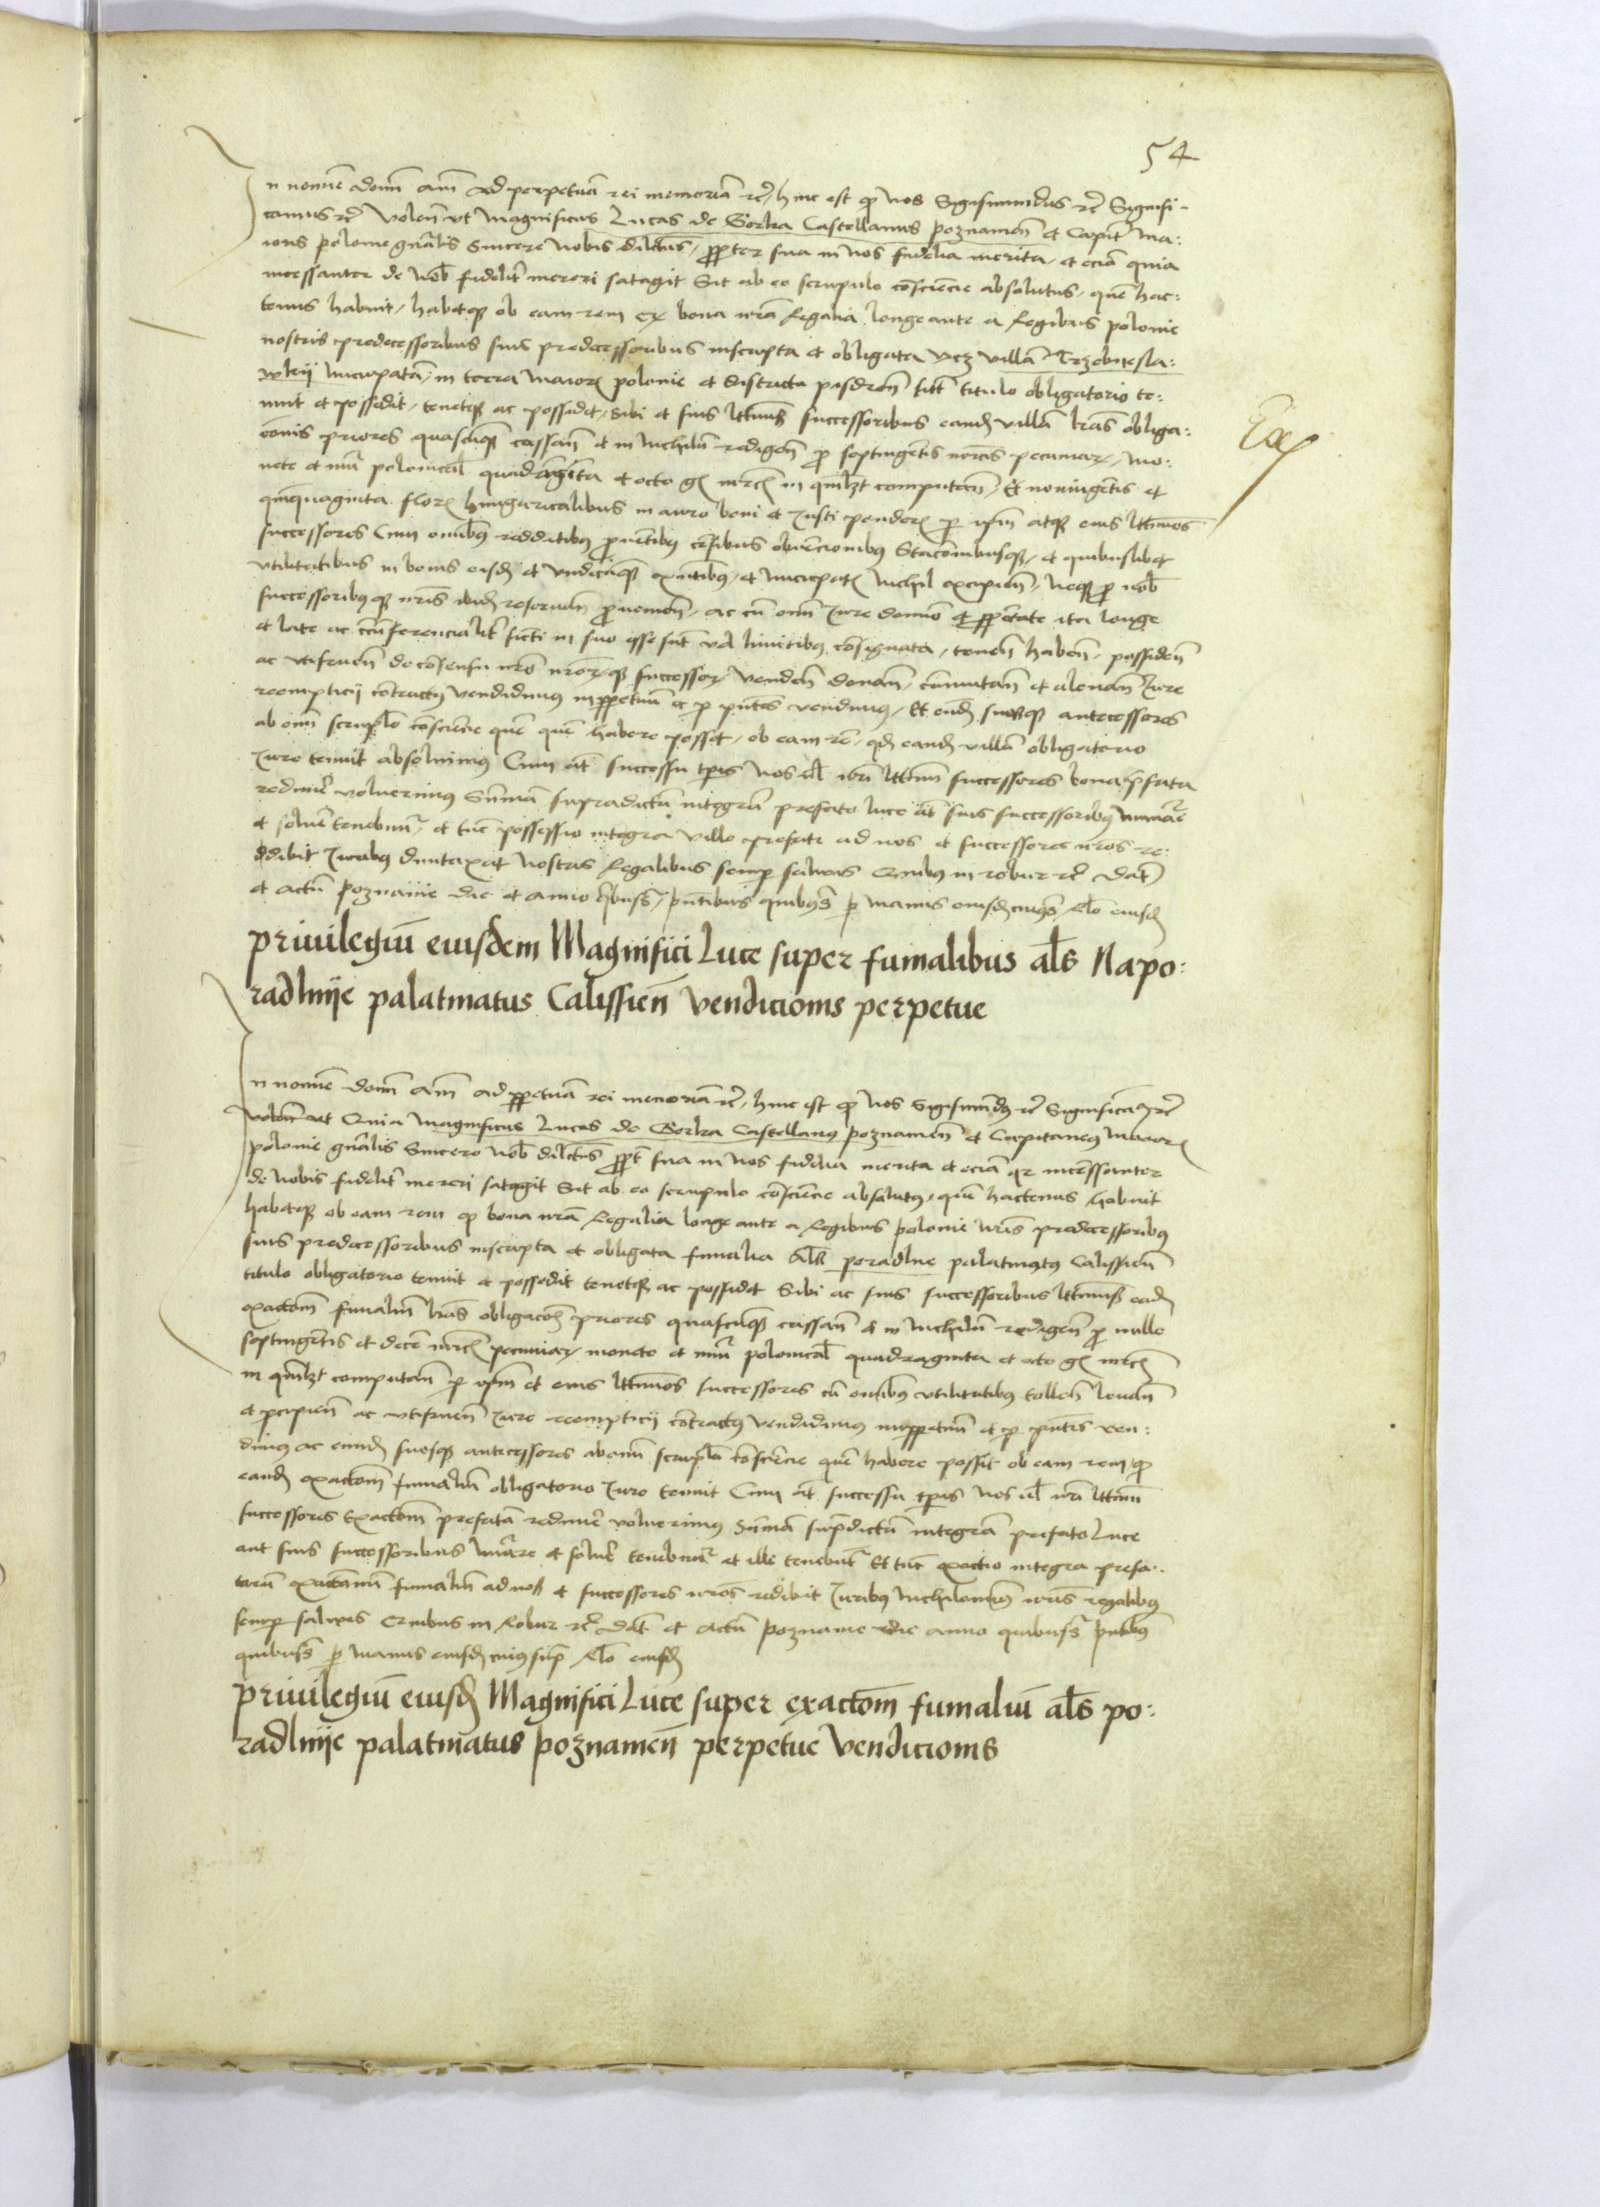 54
In nomine domi am ad perpetuam rei memoriam rc hinc est qp nos Sigismundus rc Signifi-
camus rc Volen ut Magnificus Lucas de Gorka Castellanus poznamen et Capit Ma:
ioris polonie gnalis Sincere nobis dilctus, propter sua in nos fidelia merita, et eciam quia
incessanter de nob fidelit mereri satagit Sit ab eo scrupulo consciencie absolutus, quem hac:
tenus habuit, habetqz ob eam rem qz bona nra Regalia longe ante a Regibus polonie
nostris predecessoribus suis predecessoribus inscripta et obligata vcz villam Trzebnesla:
wkij nucupatam, in terra Maioris polonie et districtu pisdren titulo obligatorio te:
nuit et possedit, tenetqz ac possidet, Sibi et suis lttimis successoribus eandem villam lras obliga:
conis priores quascuqz cassan et in nichilum redigen pro septingentis mrcis pecuniar, mo:
nete et nuri polonical quadraginta et octo gs mrcs in qmlzt computan, Et noningentis et
quinquaginta floren hungaricalibus in auro boni et Justi ponderis per ipsm atqz eius lttimos
successores Cum omnibus redditibus proventibus censibus obvencionibus Stacionibusqz, et quibuslibet
utilitatibus in bonis eisdem et undicumqz exntibus, et nucupatis nichil excipien, neqz pro nob
successoribusqz nris ibidem reservan provenien, ac cum omni Jure dominio et proprietate ita longe
et late ac circumferencialit sicuti in suo esse sunt vel limitibus consignata, tenen haben possiden
ac utifruen de consensu nro nrorqz successor, venden donan, commutan et alienan Jure
reempticij contractus vendidimus inperpetuum et per pntes vendimus, Et eundem suosqz antecessores
ab omni scrupulo consciencie quem quem habere posset, ob eam rem, qd eandem villam obligatorio
Jure tenuit absolvimus Cum aut successu tpis nos vel nri lttimi successores bona prefata
redimere voluerimus Summam supradictam integram prefato luce aut suis successoribus numerare
et solvere tenebimur, et tunc possessio integra ville prefate ad nos et successores nros re:
dibit Juribus duntaxat nostris Regalibus semper salvis Quibus in robur rc Dat
et actum poznanie die et anno quibus, pntibus quibus per manus eiusdem cuius, Rlo eiusdem
privilegium eiusdem Magnifici Luce super fumalibus als Napo:
radlnije palatinatus Calissien vendicionis perpetue
In nomine domi am ad perpetuam rei memoriam rc, hinc est qp nos Sigismundus rc Significamus rc
volen ut Quia Magnificus Lucas de Gorka Castellanus poznamen et Capitaneus Maioris
polonie gnalis Sincere nob dilctus propt sua in nos fidelia merita et eciam qz incessanter
de nobis fidelit mereri satagit Sit ab eo scrupulo consciencie absolutus, quem hactenus habuit
habetqz ob eam rem qz bona nra Regalia longe ante a Regibus polonie nris predecessoribus
suis predecessoribus inscripta et obligata fumalia Als poradlne palatinatus Calissien
titulo obligatorio tenuit et possedit tenetqz ac possidet Sibi ac suis successoribus lttimis eadem
exactom fumalium lras obligacois priores quascuqz cassan et in nichilum redigen pro mille
septingentis et decem mrcis pecuniar monete et nuri polonical quadraginta et octo gs mrcs
in qmlzt computan per ipsm et eius lttimos successores cum omnibus utilitatibus tollen levan
et percipien ac utifruen Jure reempticij contractus vendidimus inperpetuum et per pntes ven:
dimus ac eundem suosqz antecessores ab omni scrupulo consciencie quem habere possit ob eam rem qp
eandem exactom fumalium obligatorio Jure tenuit Cum aut successu tpis nos vel nri lttimi
successores Exactom prefatam redimere voluerimus Summam supradictam integram prefato Luce
aut suis successoribus numerare et solvere tenebimur et illi tenebuntur Et tunc exactio integra prefa:
tarum exactionum fumalium ad nos et successores nros redibit Juribus nichilominus nris regalibus
semper salvis Quibus in Robur rc dat et actum poznanie die anno quibus pntibus
quibus per manus eiusdem cuius supra Rlo eiusdem
privilegium eiusdem Magnifici Luce super exactom fumalium als po:
radlnije palatinatus poznamen perpetue vendicionis